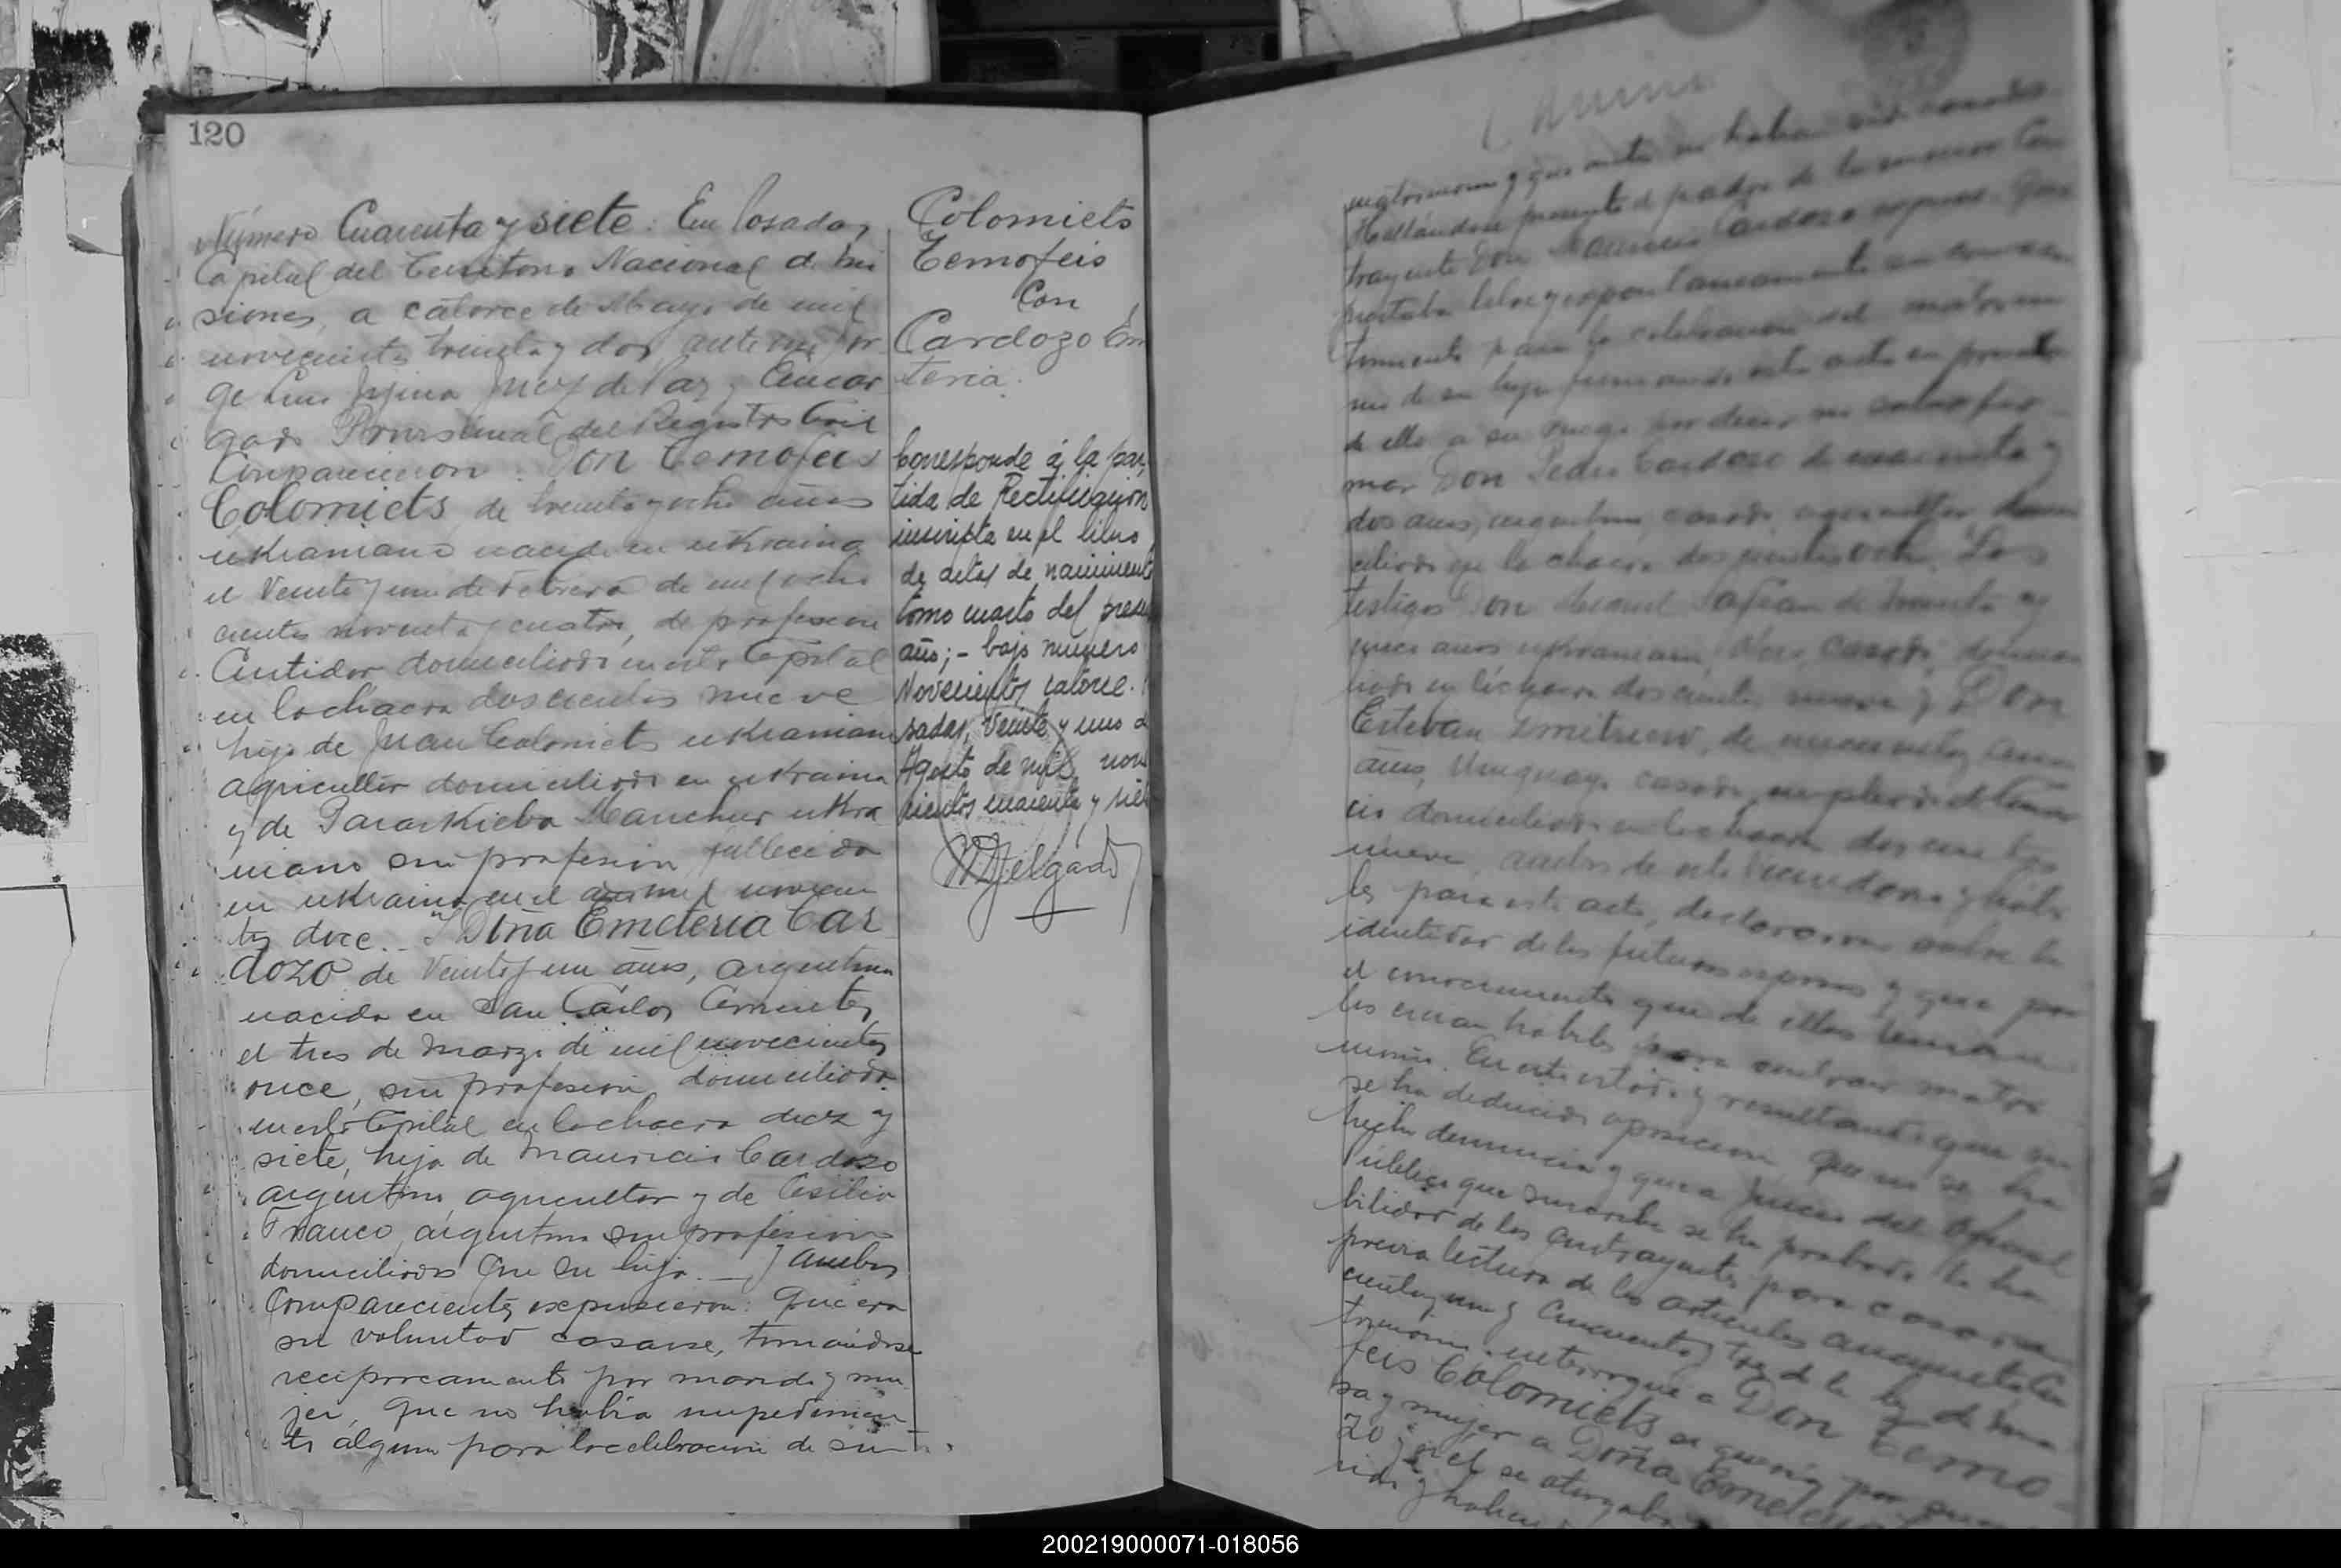 120
Número Cuarenta y siete: En Posadas,
Capital del Territorio Nacional de Mi
siones, a catorce de Mayo de mil
novecientos treinta y dos, ante mi Jor
ge Luis Juez de Paz y Encar
gado Provisional del Registro Civil
Comparecieron: Don Temofeis
Colomiets de treinta y ocho años
ukraniano nacido en ukraina
el Veinte y uno de Febrero de mil ocho
cientos noventa y cuatro, de profesion
domiciliado en esta Capital
en la chacra doscientos nueve
hijo de Juan Colomiets ukraniano
agricultor domiciliado en ukraina
y de Paraskieba Manchur ukra
niana sin profesion fallecida
en ukraina en el año mil novecien
tos doce. Y Doña Emeteria Car
dozo de Veinte y un años, argentina
nacida en San Carlos Corrientes
el tres de Marzo de mil novecientos
once, sin profesion, domiciliada
en esta Capital en la chacra diez y
siete, hija de Mauricio Cardozo
argentino, agricultor y de Cesilia
Franco, argentina sin profesion
domiciliados que su hija. — y ambos
Comparecientes expusieron: Que era
su voluntad casarse, tomandose
reciprocamente por marido y mu
jer, Que no habia impedimen
to alguno para la celebracion de su
Colomiets
Temofeis
Con
Cardozo Em
teria.
Corresponde á la par
tida de Rectificación
inscripta en el libro
de actas de nacimiento
tomo cuarto del prese
año; - bajo número
Novecientos catorce.
sadas, Veinte y uno d
Agosto de mil nove
cientos cuarenta y siet
Delgado
matrimonio y que antes no habian sido casados
Hallándose presente el padre de la menor Con
trayente Don Mauricio Cardozo expuso: Que
prestaba libre y espontaneamente su consen
timiento para la celebracion del matrimo
nio de su hija firmando esta acta en prueba
de ello a su ruego por decir no saber fir
mar Don Pedro Cardozo de cuarenta y
dos años, argentino casado, agricultor domi
ciliado en la chacra doscientos ocho. Los
testigos Don Miguel de treinta y
años ukraniano, casado, domici
liado en la chacra doscientos nueve y Don
Esteban Dmitruw, de cincuenta
años, Uruguayo casado, empleado
domiciliado en la chacra doscientos
nueve, ambos de este vecindario y hábi
les para este acto, declararon sobre la
identidad de los futuros esposos y que por
el conocimiento que de ellos tenian
los creian habiles para contraer matri
monio. En este estado y resultando que no
se ha deducido oposicion Que no se ha
hecho denuncia y que a juicio del Oficial
Público que suscribe se ha probado la ha
bilidad de los contrayentes para casarse
previa lectura de los articulos cincuenta
cincuenta y uno y cincuenta y tres de la ley de ma
trimonio interrogue a Don Temo
feis Colomiets si queria por espo
sa y mujer a Doña Emeteria
zo y si el se otorgaba
200219000071-018056